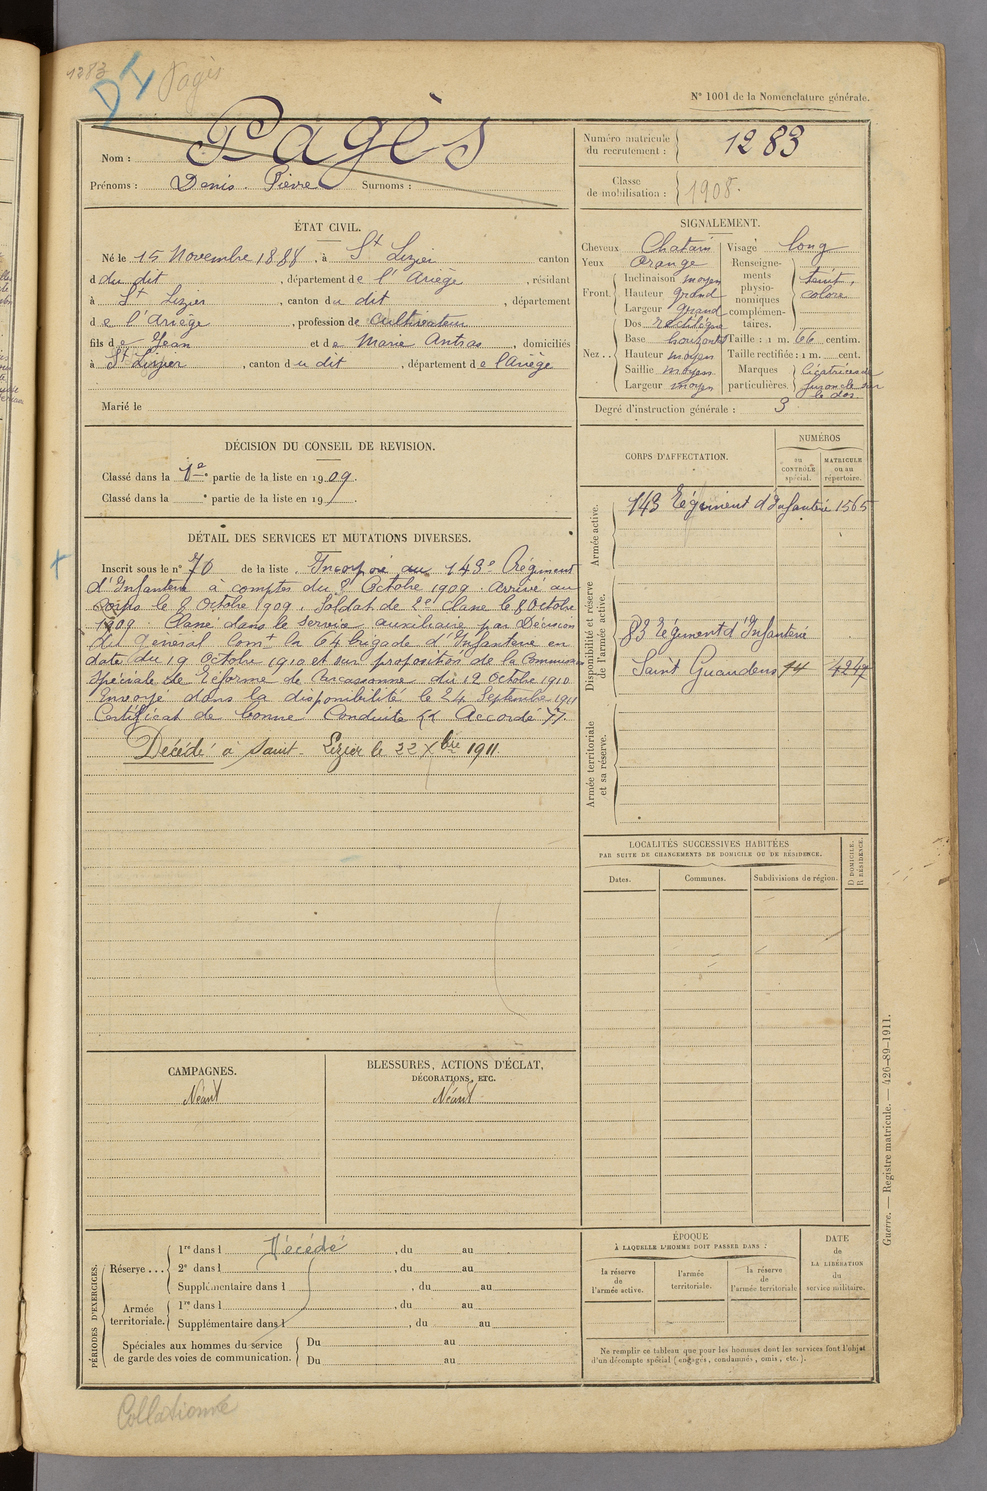 1283
DI Pagès
N° 1001 de la Nomenclature générale.
Nom : Pagès
Prénoms : Denis. Pierre Surnoms :
Numéro matricule du recrutement : 1283
Classe de mobilisation : 1908.
ÉTAT CIVIL.
Né le 15 Novembre 1888, à St Lizier canton
d du dit, département de l'Ariège, résidant
à St Lizier, canton du dit, département
de l'Ariège, profession de Cultivateur
fils de Jean et de Marie Antras, domiciliés
à St Lizier, canton du dit, département de l'Ariège
Marié le
SIGNALEMENT.
Cheveux Chatain Visage long
Yeux orange
Front. Inclinaison moyen
Hauteur grand
Largeur grand
Nez . . Dos rectiligne
Base horizontal
Hauteur moyen
Saillie moyen
Largeur moyen
Renseignements physionomiques complémentaires. teint coloré
Taille : 1 m. 66 centim.
Taille rectifiée : 1 m. cent.
Marques particulières. Cicatrices de furoncle sur le dos.
Degré d'instruction générale : 3
DÉCISION DU CONSEIL DE REVISION.
Classé dans la 1e partie de la liste en 1909.
Classé dans la ° partie de la liste en 19 .
DÉTAIL DES SERVICES ET MUTATIONS DIVERSES.
Inscrit sous le n° 70 de la liste. Incorporé au 143e Régiment
d'Infanterie à compter du 8 Octobre 1909. Arrivé au
corps le 8 Octobre 1909. Soldat de 2e classe le 8 Octobre
1909. Classé dans le service auxiliaire par Décision
du général Comt la 64 brigade d'Infanterie en
date du 19 Octobre 1910 et sur proposition de la Commission
Spéciale de Réforme de Carcassonne du 12 Octobre 1910
Envoyé dans la disponibilité le 24 Septembre 1911
Certificat de bonne Conduite "Accordé".
Décédé à Saint-Lizier le 22 Xbre 1911.
CORPS D'AFFECTATION.
NUMÉROS
au CONTRÔLE spécial.
MATRICULE ou au répertoire.
Armée active.
143 Régiment d'Infanterie 1565
Disponibilité et réserve de l'armée active.
83 Régiment d'Infanterie
Saint Gaudens 14 4247
Armée territoriale et sa réserve.
LOCALITÉS SUCCESSIVES HABITÉES
PAR SUITE DE CHANGEMENTS DE DOMICILE OU DE RÉSIDENCE.
Dates. Communes. Subdivisions de région. D DOMICILE. R RÉSIDENCE.
CAMPAGNES.
Néant
BLESSURES, ACTIONS D'ÉCLAT,
DÉCORATIONS, ETC.
Néant
PÉRIODES D'EXERCICES.
Réserve . . . 1re dans l Décédé, du au
2e dans l , du au
Supplémentaire dans l , du au
Armée territoriale. 1re dans l , du au
Supplémentaire dans l , du au
Spéciales aux hommes du service de garde des voies de communication. Du au
Du au
ÉPOQUE
À LAQUELLE L'HOMME DOIT PASSER DANS :
la réserve de l'armée active.
l'armée territoriale.
la réserve de l'armée territoriale
DATE de LA LIBÉRATION du service militaire.
Ne remplir ce tableau que pour les hommes dont les services font l'objet
d'un décompte spécial (engagés, condamnés, omis, etc.).
Guerre. — Registre matricule. — 426-89-1911.
Collationné